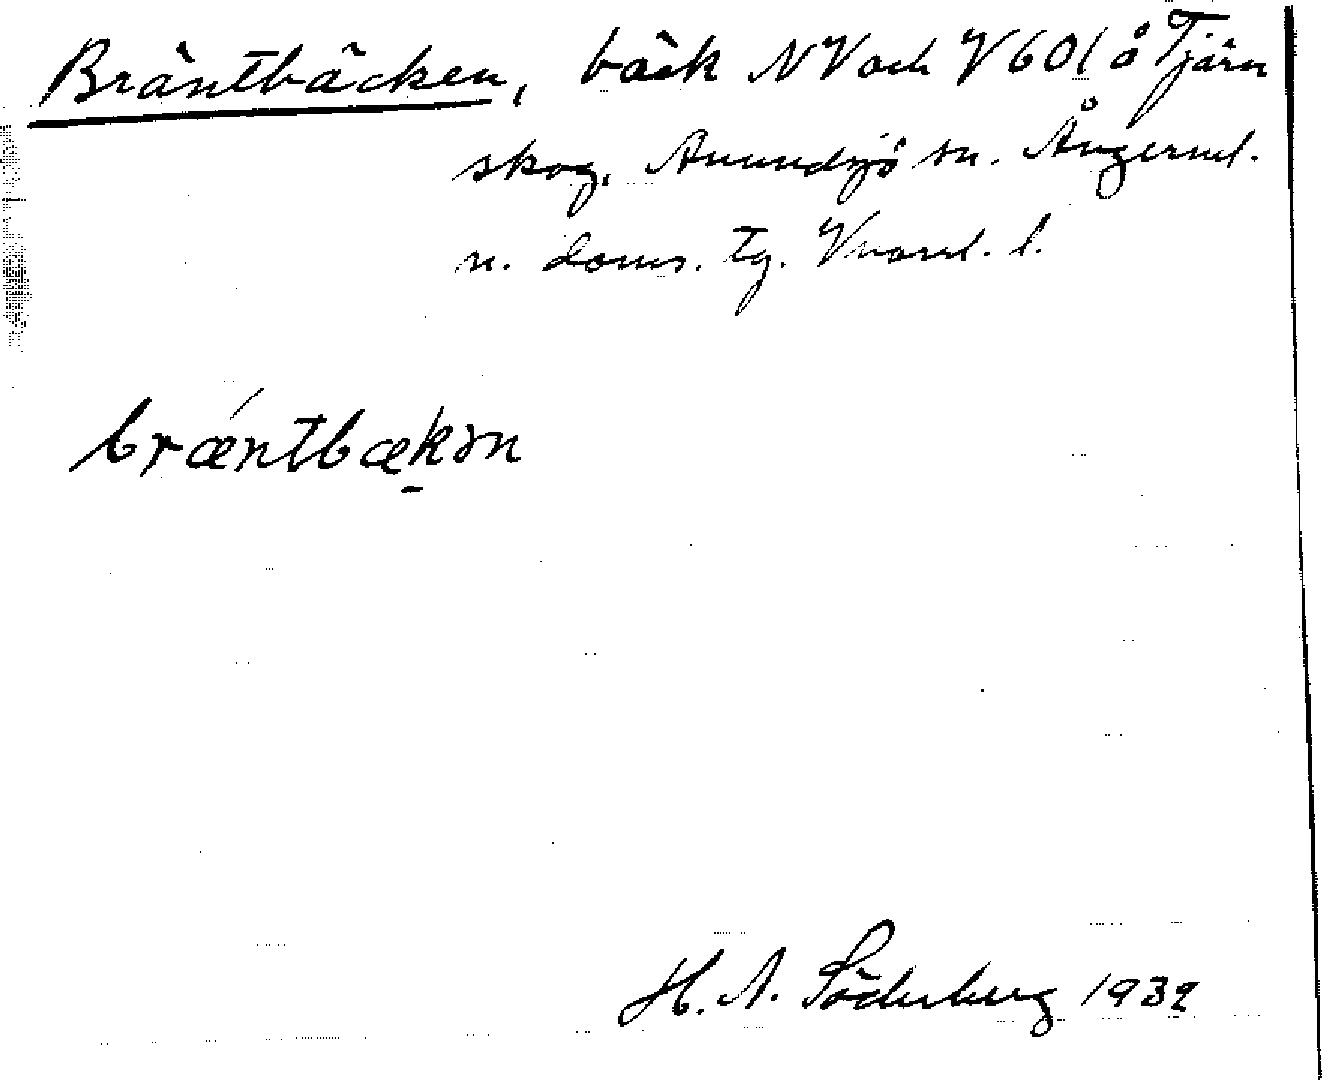 Bräntbäcken, bäck NV och V 601 å Tjärn
skog, Anundsjö sn. Ångerml.
n. doms. tg. Vnorrl. l.
bræ´ntbæk̠ən
H. A. Söderberg 1932